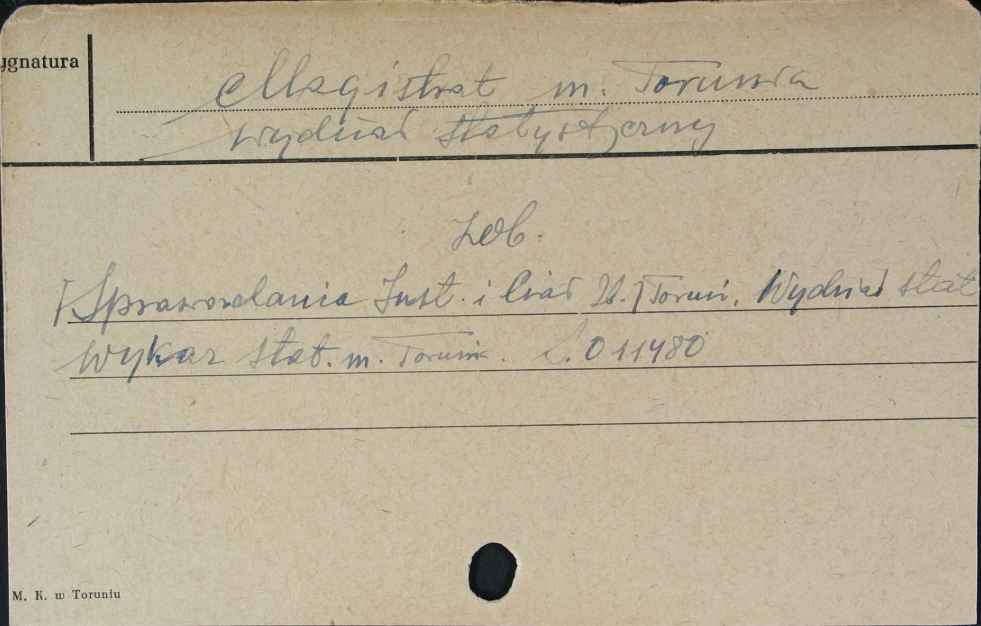 ygnatura
Magistrat m. Torunia
Wydział Statystyczny
Zob.
[Sprawozdania Inst. i Ciał U.] Toruń, Wydział Stat
Wykaz Stat. m. Torunia. 011480
M. K. w Toruniu